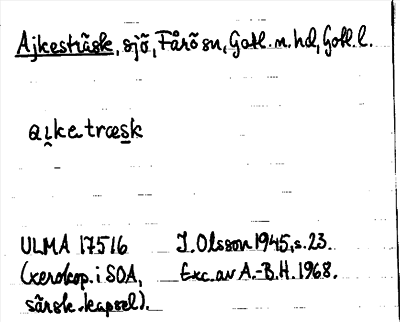 Ajketräsk, sjö, Fårö sn, Gotl. n. hd, Gotl. l.
ai̯ketræsk
ULMA 17516 I. Olsson 1945, s. 23.
(xerokop. i SOA, Exc. av A.-B.H. 1968.
särsk. kapsel).